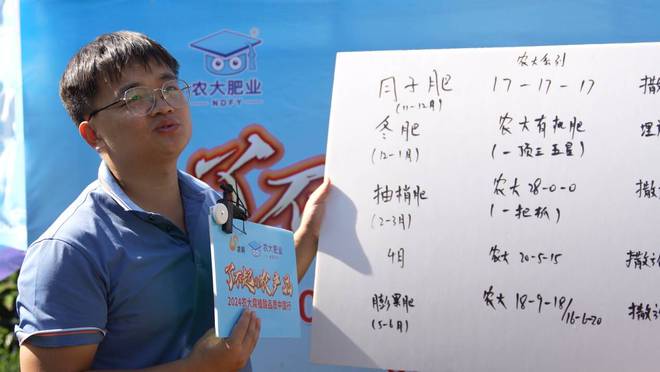 农大肥业
NDFY
了不
农大系列
月子肥
17-17-17
撒
(11-12月)
冬肥
农大有机肥
埋
(12-1月)
(一顶三 五星)
抽梢肥
农大 28-0-0
撒
(2-3月)
(一把抓)
4月
农大 20-5-15
撒
膨果肥
农大 18-9-18/16-6-20
撒
(5-6月)
农大肥业
了不起的农产品
2024农大腐植酸品质中国行